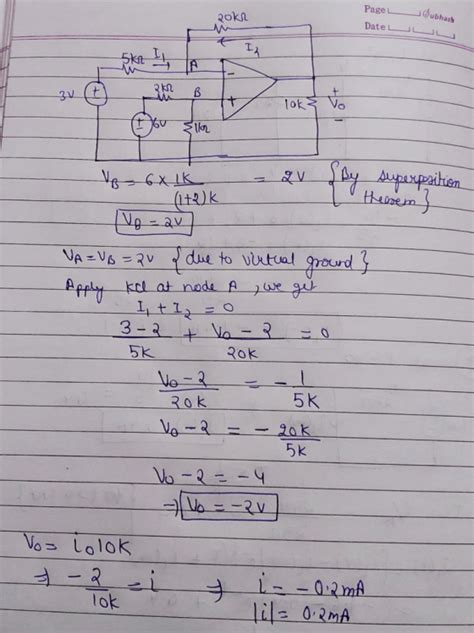 Page
Subhash
Date
20kΩ
I₂
5kΩ I₁ A −
2kΩ B +
3V 6V 1kΩ 10k + Vo −
V_B = 6 × 1K/(1+2)K = 2V {By superposition theorem}
V_B = 2V
V_A = V_B = 2V {due to virtual ground}
Apply kcl at node A, we get
I₁ + I₂ = 0
3-2/5K + Vo-2/20K = 0
Vo-2/20K = -1/5K
Vo-2 = -20K/5K
Vo-2 = -4
⇒ Vo = -2V
Vo = io10K
⇒ -2/10K = i ⇒ i = -0.2mA
|i| = 0.2mA